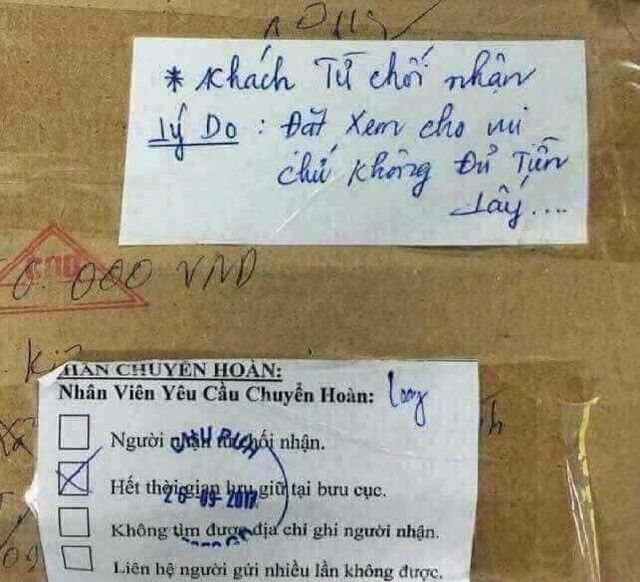 * Khách Từ chối nhận
Lý Do : Đặt xem cho vui
chứ không Đủ Tiền
Lấy....
000 VND
PHẦN CHUYỂN HOÀN:
Nhân Viên Yêu Cầu Chuyển Hoàn: Long
Người nhận từ chối nhận.
Hết thời gian lưu giữ tại bưu cục.
26-09-2017
Không tìm được địa chỉ ghi người nhận.
Liên hệ người gửi nhiều lần không được.